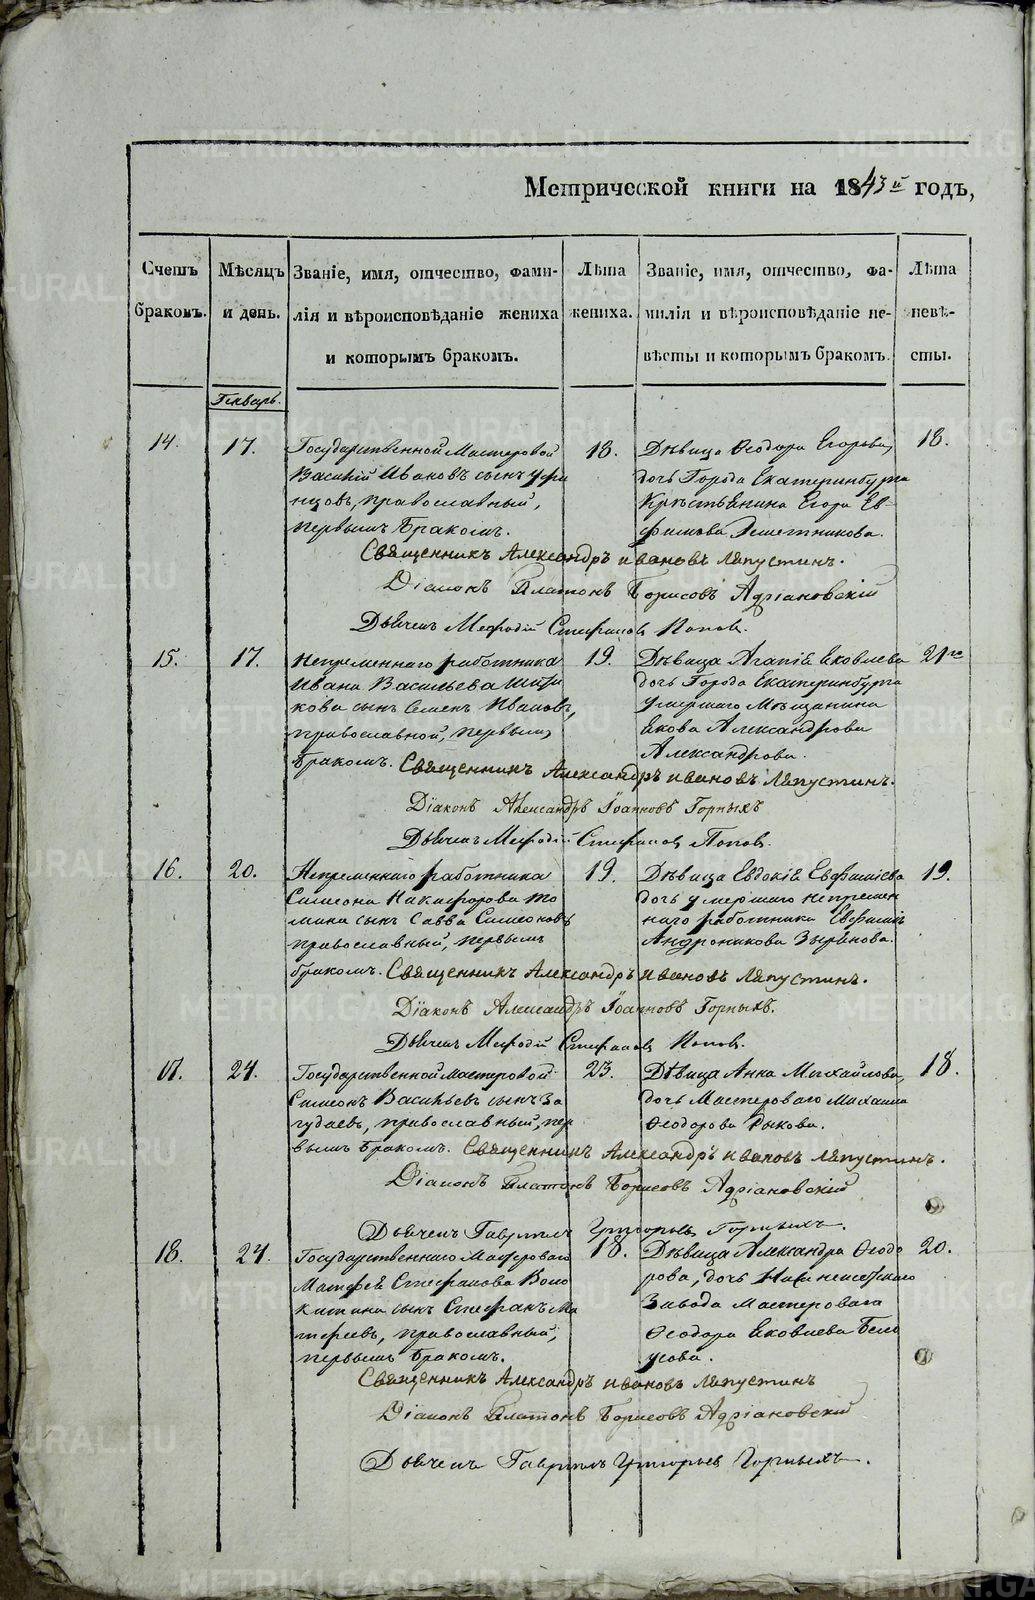 Метрической книги на 1843й годъ,
Счетъ браковъ.
Мѣсяцъ и день.
Званіе, имя, отчество, фами-
лія и вѣроисповѣданіе жениха
и которымъ бракомъ.
Лѣта жениха.
Званіе, имя, отчество, фа-
милія и вѣроисповѣданіе не-
вѣсты и которымъ бракомъ.
Лѣта невѣ-
сты.
Генварь.
14. 17.
Государственной Мастеровой
Василій Ивановъ сынъ
православный,
первымъ бракомъ.
18.
Дѣвица Ѳеодора Егорова,
дочь Города Екатеринбурга
Крѣстьянина Егора Ев-
фимова Решетникова.
18.
Священникъ Александръ Ивановъ Ляпустинъ.
Діаконъ Платонъ Борисовъ Адріановскій
Дьячекъ Меѳодій Стефановъ Поповъ.
15. 17.
Непременнаго работника
Ивана Васильева
сынъ Семенъ Ивановъ,
православной, первымъ
бракомъ.
19.
Дѣвица Агапія Яковлева
дочь Города Екатеринбурга
умершаго Мѣщанина
Якова Александрова
Александрова.
21го
Священникъ Александръ Ивановъ Ляпустинъ.
Діаконъ Александръ Іоанновъ Горныхъ
Дьячекъ Меѳодій Стефановъ Поповъ.
16. 20.
Непременнаго работника
Симеона Никифорова То-
мина сынъ Савва Симеоновъ
православный, первымъ
бракомъ.
19.
Дѣвица Евдокія Евфиміева
дочь умершаго непремен
наго работника Евфимія
Андроникова Зырянова.
19.
Священникъ Александръ Ивановъ Ляпустинъ.
Діаконъ Александръ Іоанновъ Горныхъ.
Дьячекъ Меѳодій Стефановъ Поповъ.
17. 24.
Государственной Мастеровой
Симеонъ Васильевъ сынъ
православный, пер
вымъ бракомъ.
23.
Дѣвица Анна Михайлова,
дочь Мастероваго Михаила
Ѳеодорова Рыкова.
18.
Священникъ Александръ Ивановъ Ляпустинъ.
Діаконъ Платонъ Борисовъ Адріановскій
Дьячекъ Гавріилъ Григорьевъ Горныхъ.
18. 24.
Государственнаго Мастероваго
Матфея Стефанова Воло
китина сынъ Стефанъ Ма
тфеевъ, православный,
первымъ бракомъ.
18.
Дѣвица Александра Ѳеодо
рова, дочь
Завода Мастероваго
Ѳеодора Яковлева Бело
усова.
20.
Священникъ Александръ Ивановъ Ляпустинъ
Діаконъ Платонъ Борисовъ Адріановскій
Дьячекъ Гавріилъ Григорьевъ Горныхъ.
METRIKI.GASO-URAL.RU